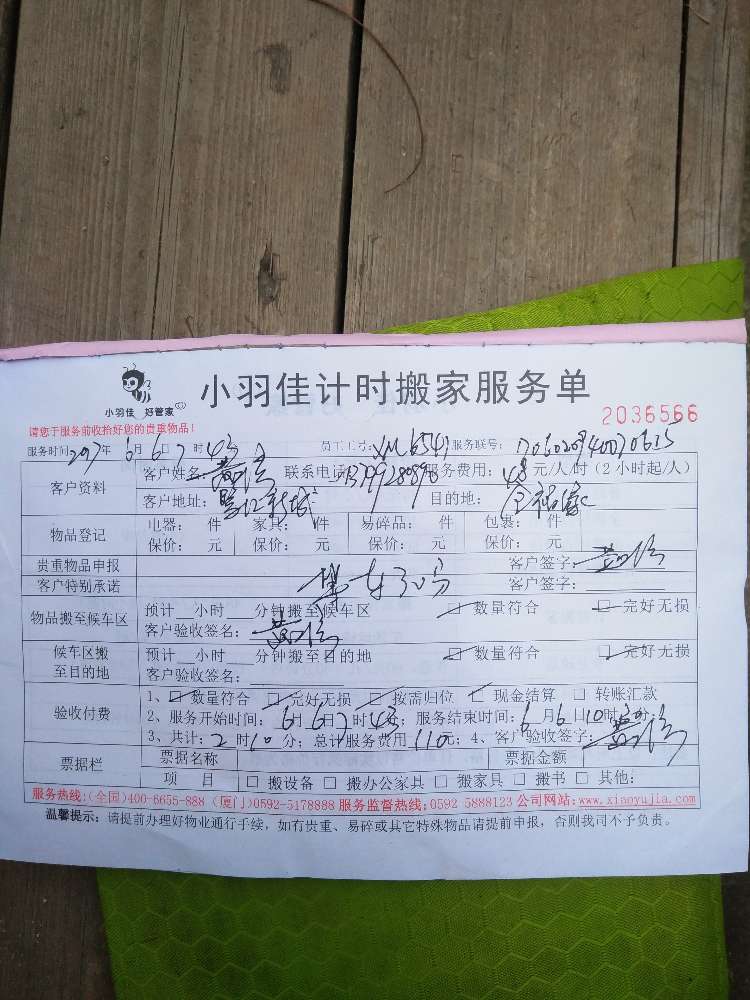 小羽佳 好管家
小羽佳计时搬家服务单
2036566
请您于服务前收拾好您的贵重物品!
服务时间: 年 6月6日 7时 43 员工工号: XM6541 服务联号:
客户资料 客户姓名: 联系电话: 服务费用: 48 元/人/时 (2小时起/人)
客户地址: 目的地:
物品登记 电器: 件 家具: 件 易碎品: 件 包裹: 件
保价: 元 保价: 元 保价: 元 保价: 元
贵重物品申报 客户签字:
客户特别承诺 客户签字:
物品搬至候车区 预计 小时 分钟搬至候车区 □ 数量符合 □ 完好无损
客户验收签名:
候车区搬至目的地 预计 小时 分钟搬至目的地 □ 数量符合 □ 完好无损
客户验收签名:
验收付费 1、□ 数量符合 □ 完好无损 □ 按需归位 □ 现金结算 □ 转账汇款
2、服务开始时间: 6月6日7时43分; 服务结束时间: 6月6日10时 分;
3、共计: 2时10分; 总计服务费用 110元; 4、客户验收签字:
票据栏 票据名称 票据金额
项 目 □ 搬设备 □ 搬办公家具 □ 搬家具 □ 搬书 □ 其他:
服务热线:(全国)400-6655-888 (厦门)0592-5178888 服务监督热线:0592 5888123 公司网站:www.xiaoyujia.com
温馨提示: 请提前办理好物业通行手续, 如有贵重、易碎或其它特殊物品请提前申报, 否则我司不予负责。